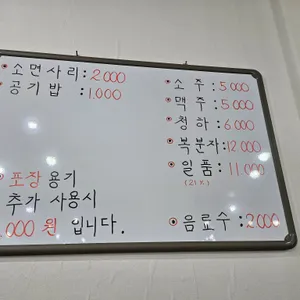 소면사리: 2000
공기밥: 1.000
포장 용기
추가 사용시
000 원 입니다.
소주: 5000
맥주: 5000
청하: 6000
복분자: 12000
일품: 11000
음료수: 2000